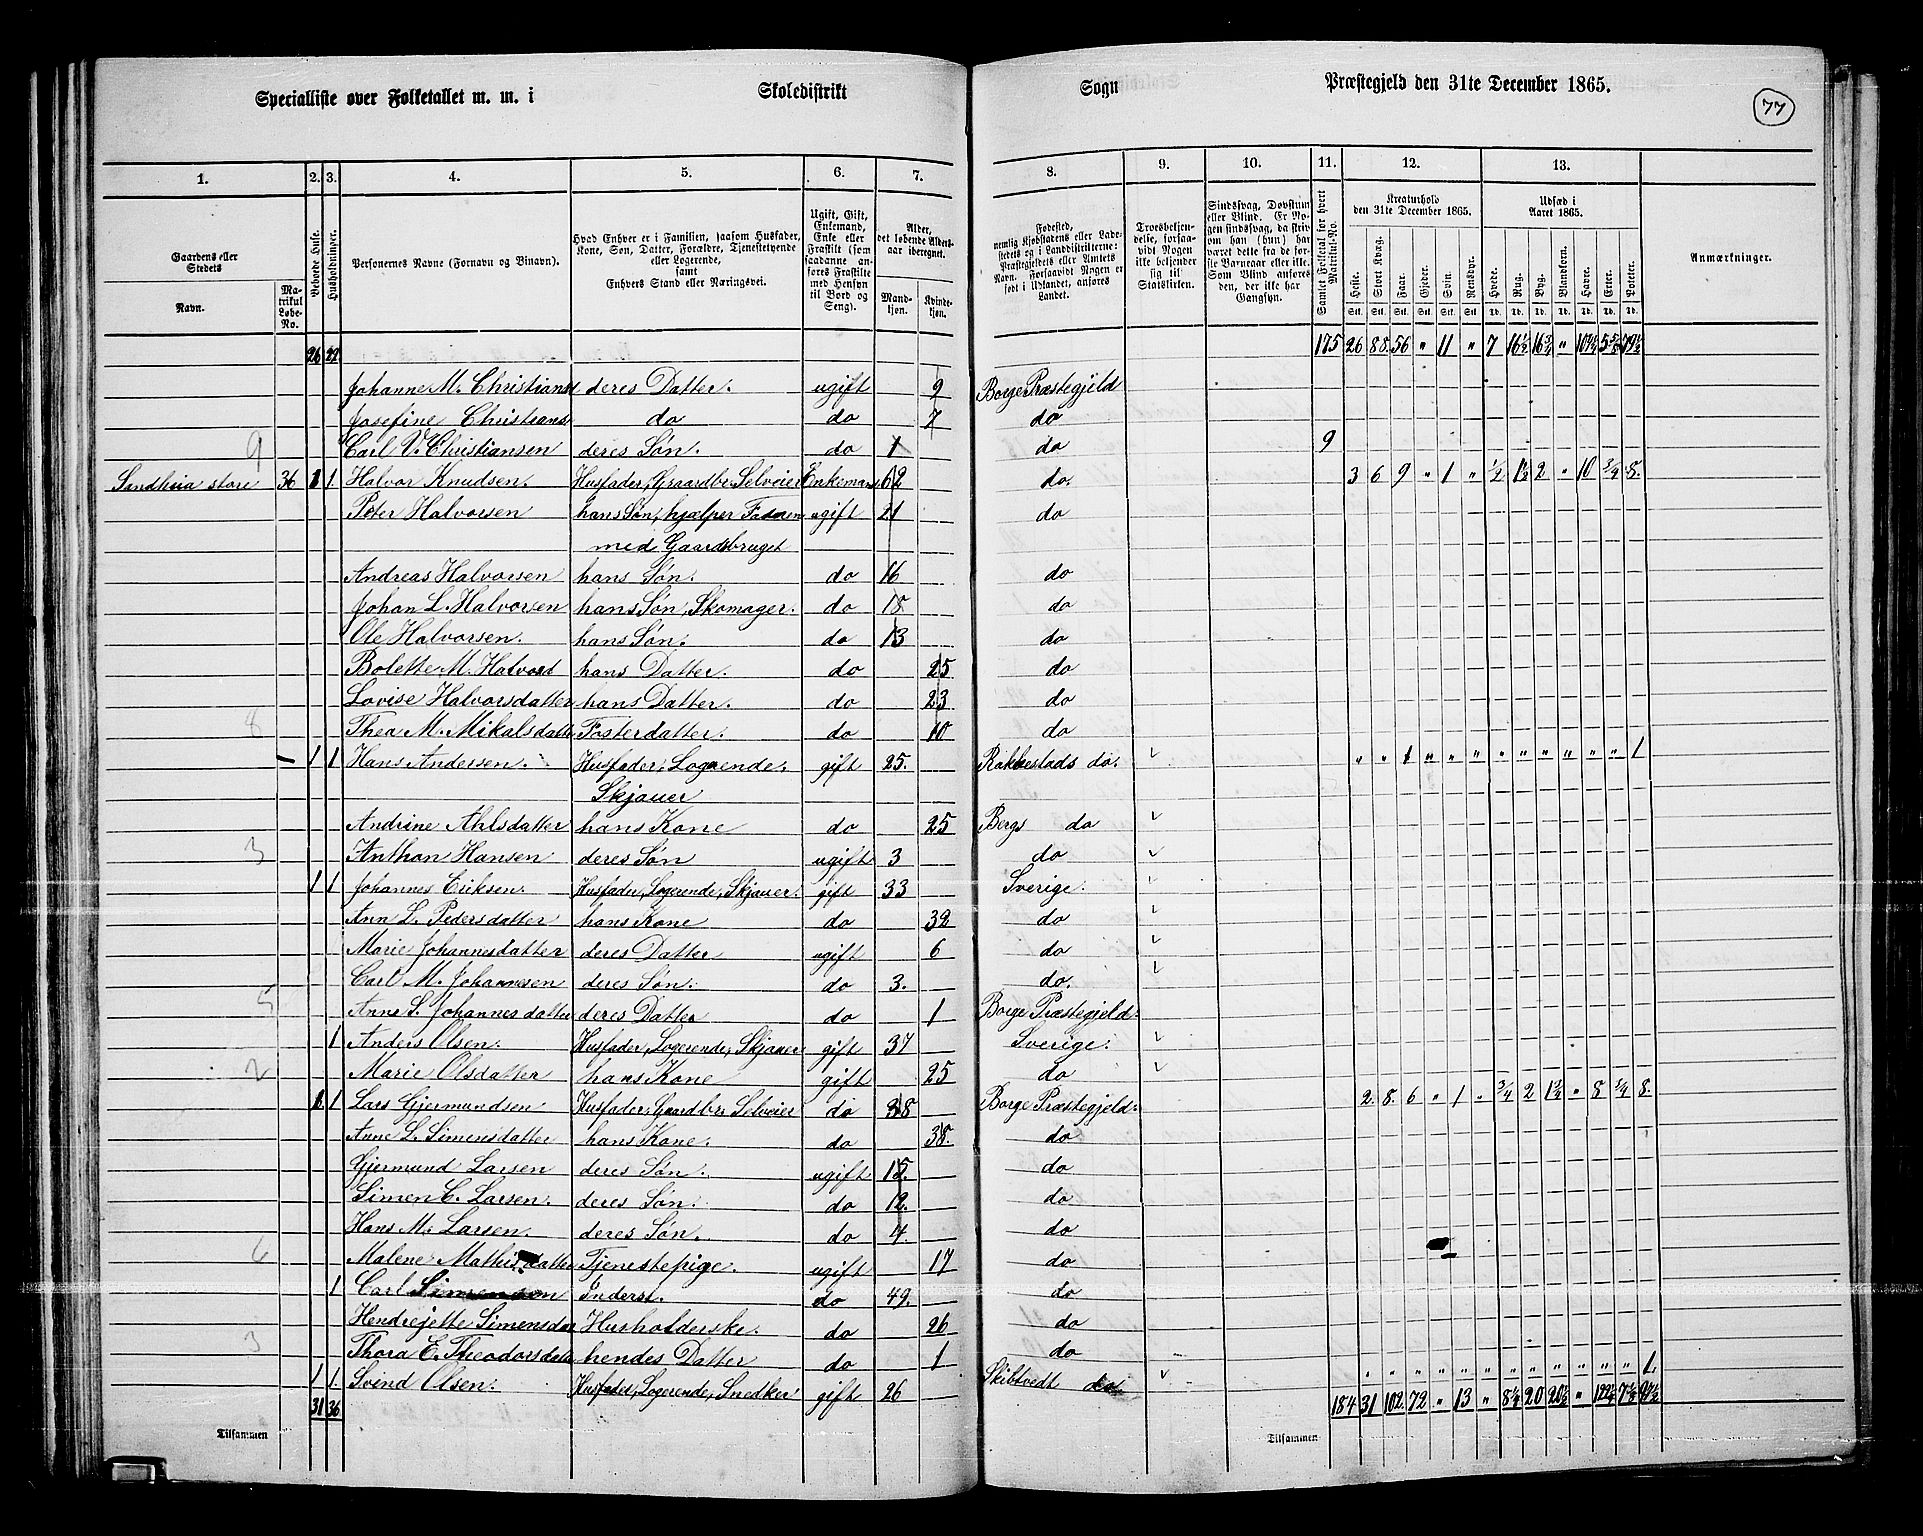 Specialliste over Folketallet m. m. i Skoledistrikt Sogn Præstegjeld den 31te December 1865.
77
1. 2. 3. 4. 5. 6. 7. 8. 9. 10. 11. 12. 13.
Gaardens eller Stedets
Navn.
Matrikul Løbe-No.
Beboede Huse.
Husholdninger.
Personernes Navne (Fornavn og Binavn).
Hvad Enhver er i Familien, saasom Husfader, Kone, Søn, Datter, Forældre, Tjenestetyende eller Logerende, samt Enhvers Stand eller Næringsvei.
Ugift, Gift, Enkemand, Enke eller Fraskilt (som saadanne anføres Fraskilte med Hensyn til Bord og Seng).
Alder, det løbende Aldersaar iberegnet.
Mandkjøn. Kvindekjøn.
Fødested, nemlig Kjøbstadens eller Ladestedets og i Landdistrikterne: Præstegjeldets eller Amtets Navn. Forsaavidt Nogen er født i Udlandet, anføres Landet.
Troesbekjendelse, forsaavidt Nogen ikke bekjender sig til Statskirken.
Sindssvag, Døvstum eller Blind. Er Nogen sindssvag, da skriv om han (hun) har været dette fra de første Barneaar eller ikke. Som Blind anføres den, der ikke har Gangsyn.
Samlet Folketal for hvert Matrikul-No.
Kreaturhold den 31te December 1865.
Heste. Stort Kvæg. Faar. Gjeder. Svin. Rensdyr.
Udsæd i Aaret 1865.
Hvede. Rug. Byg. Blandkorn. Havre. Erter. Poteter.
Anmærkninger.
26 22 175 26 88 56 " 11 " 7 16½ 16¾ "
Johanne M. Christians deres Datter. ugift 9 Borge Præstegjeld
Josefine Christians do do 7 do
9 Carl V. Christiansen deres Søn. do 1 do 9
36 1 1 Halvor Knudsen. Husfader, Gaardbr. Selveier Enkemand 62 do. 3 6 9 " 1 " ½ 1½ 2 " 10 ¾ 8.
Peter Halvorsen hans Søn, hjælper Faderen ugift 21 do
med Gaardsbruget
Andreas Halvorsen hans Søn. do 16 do
Johan L. Halvorsen hans Søn, Skomager. do 18 do
Ole Halvorsen. hans Søn. do 13 do
Bolette M. Halvord hans Datter. do 25 do
Lovise Halvorsdatter hans Datter. do 23 do
8 Thea M. Mikalsdatter Fosterdatter. do 10 do
1 1 Hans Andersen. Husfader, Logerende. gift 25. Rakkestads do. " " 1 " " " " " " " " " 1
Skjauer
Andrine Ahlsdatter hans Kone do 25 Bergs do
3 Anthon Hansen deres Søn ugift 3 do
1 1 Johannes Eriksen. Husfader, Logerende, Skjauer. gift 33 Sverige.
Ann L. Pedersdatter hans Kone do 32 do
Marie Johannesdatter deres Datter ugift 6 do
Carl M. Johannesen deres Søn. do 3. do.
5 Anne S. Johannesdatter deres Datter do 1 Borge Præstegjeld.
1 Anders Olsen. Husfader, Logerende, Skjauer gift 37 Sverige.
2 Marie Olsdatter hans Kone gift 25 do
1 1 Lars Gjermundsen Husfader, Gaardbr. Selveier do 38 Borge Præstegjeld. 2. 8. 6 " 1 " ¾ 2 1½ " 8 ¾ 8.
Anne L. Simensdatter hans Kone. do 38. do
Gjermund Larsen deres Søn. ugift 15. do
Simen C. Larsen. deres Søn. do 12. do
Hans M. Larsen. deres Søn. do 4. do
6 Malene Mathisdatter Tjenestepige. ugift 17 do
1 Carl Simensen Inderst. do 49. do
Hendrejette Simensdat Husholderske. do 26 do
3 Thora E. Theodorsdat hendes Datter do 1 do
1 1. Svend Olsen. Husfader, Logerende, Snedker gift 26 Skibtvedt do. " " " " " " " " " " " " 1.
31 36 184 31 102 72 " 13 " 8¼ 20 20½ "
Tilsammen Tilsammen